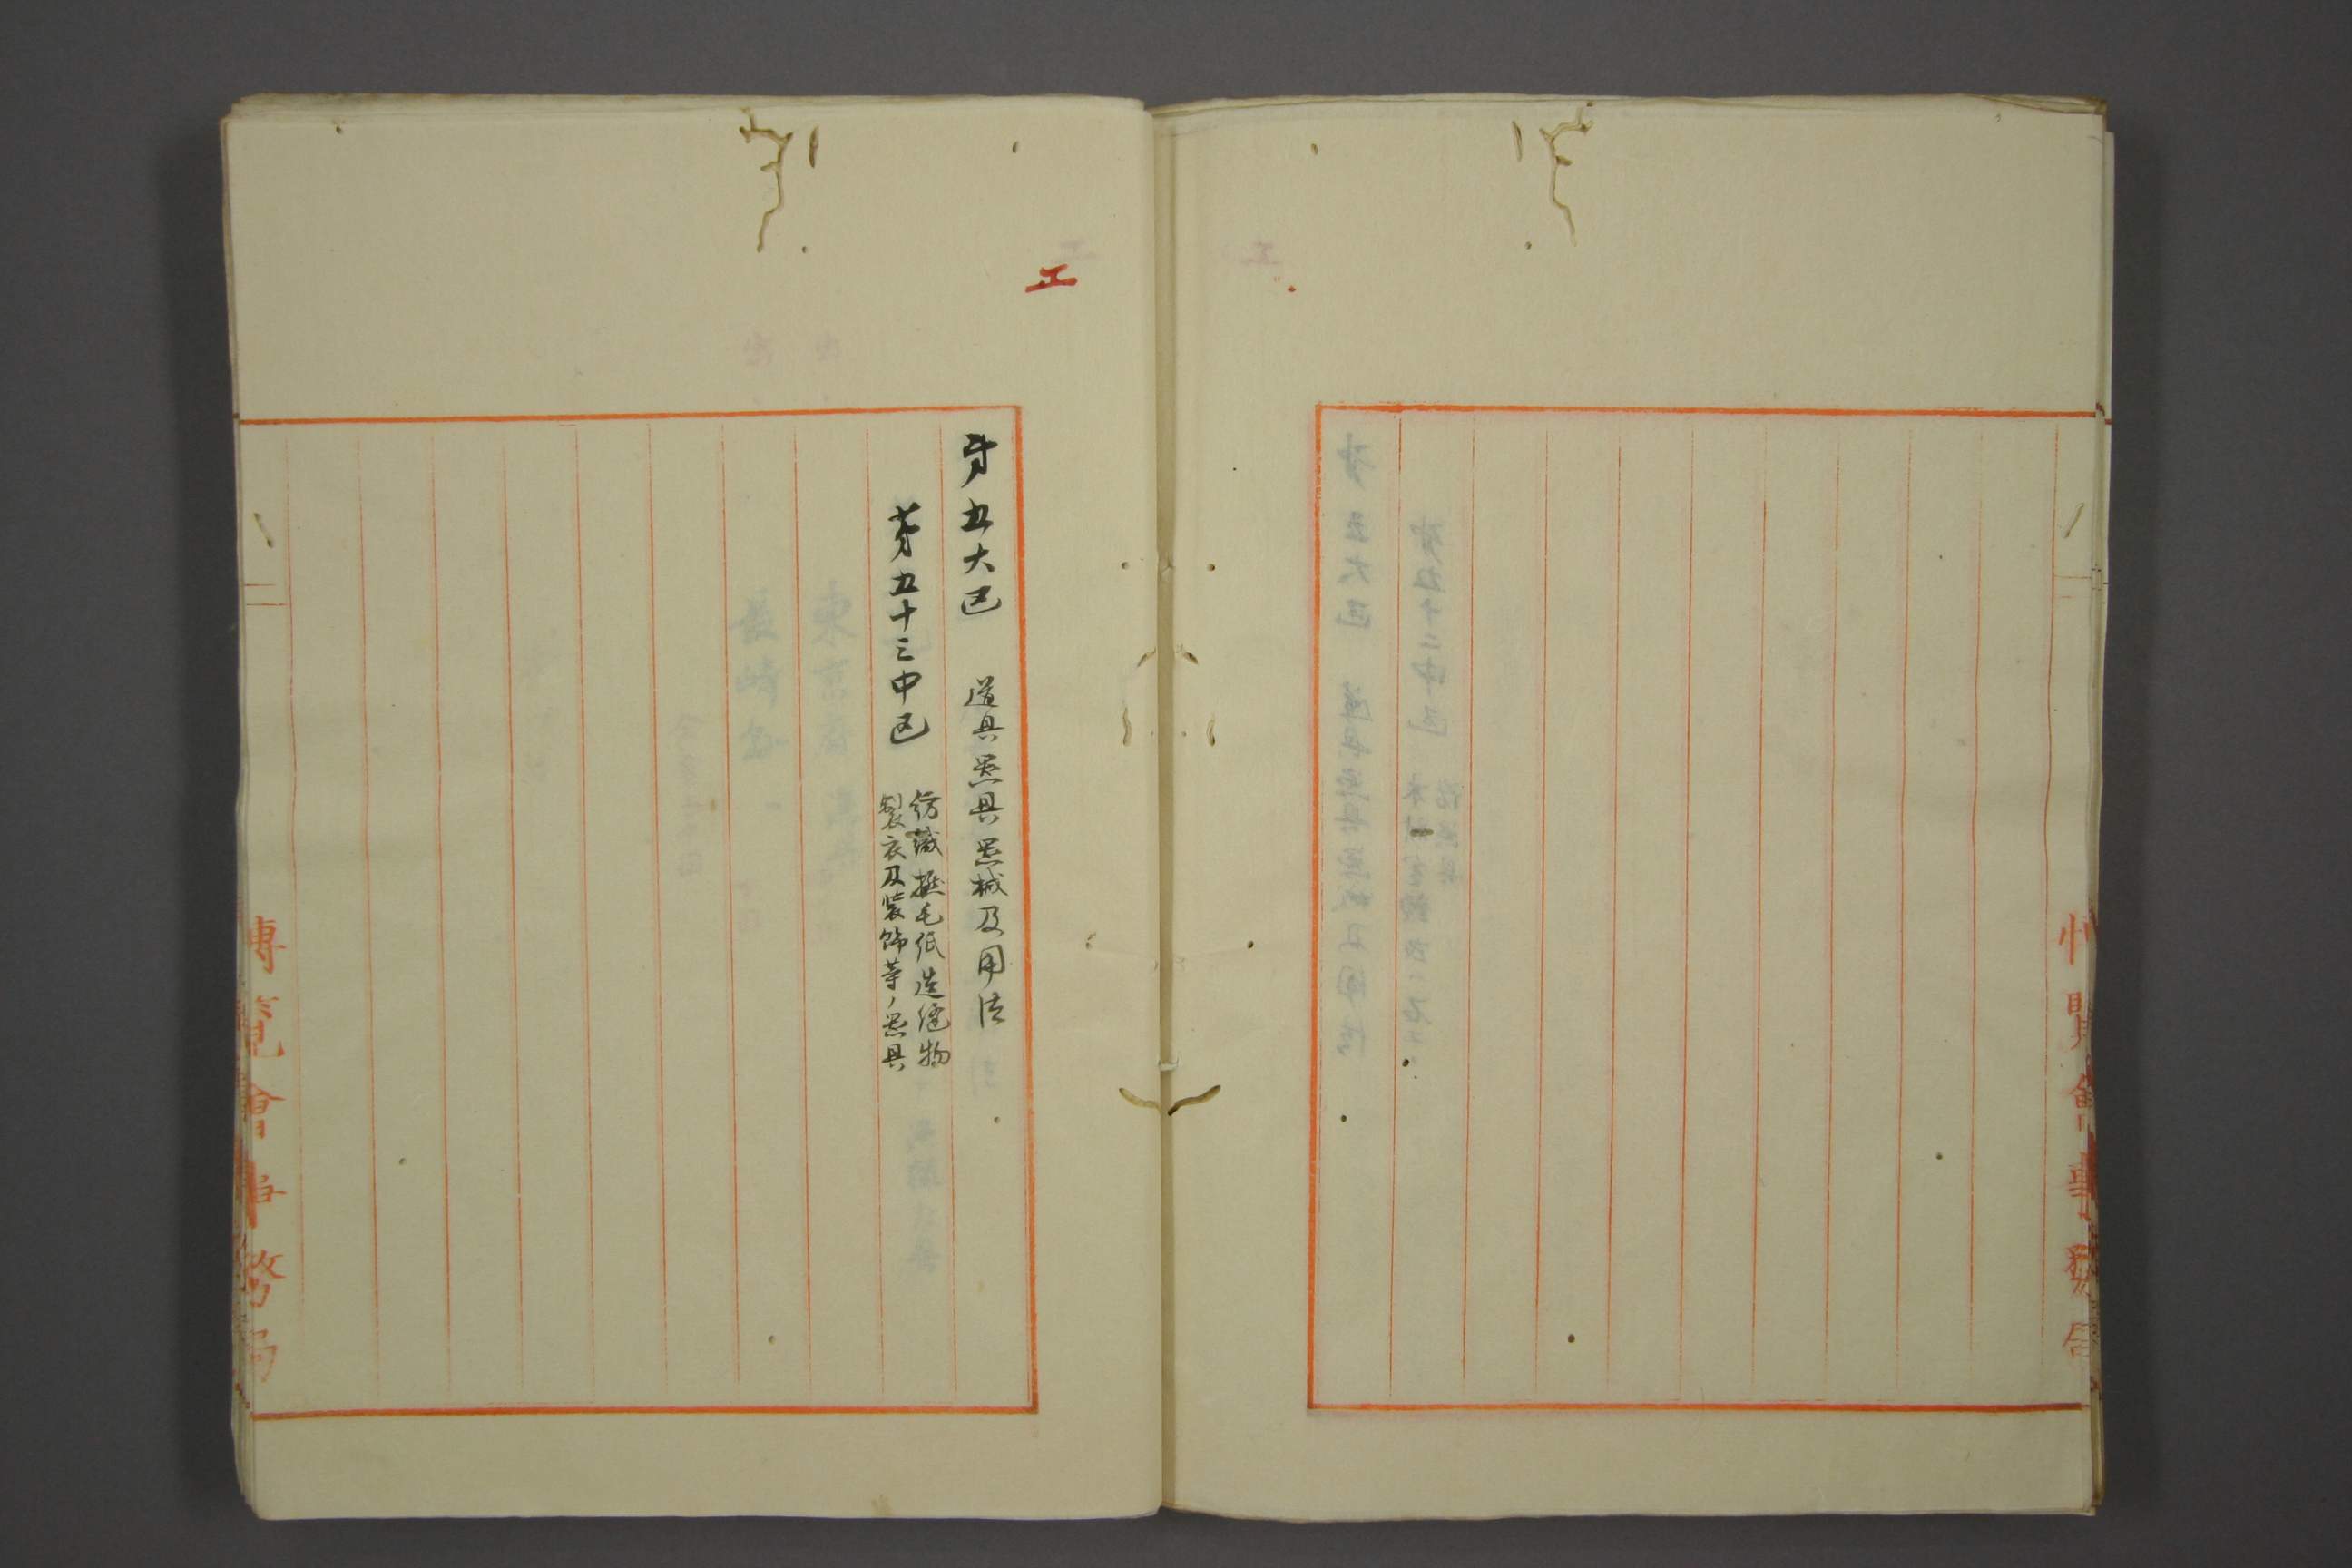 工
第五大区 道具器具器械及用法
第五十三中区 紡織撚毛紙造縫物
製衣及装飾等ノ器具
博覧會事務局
博覽會事務局